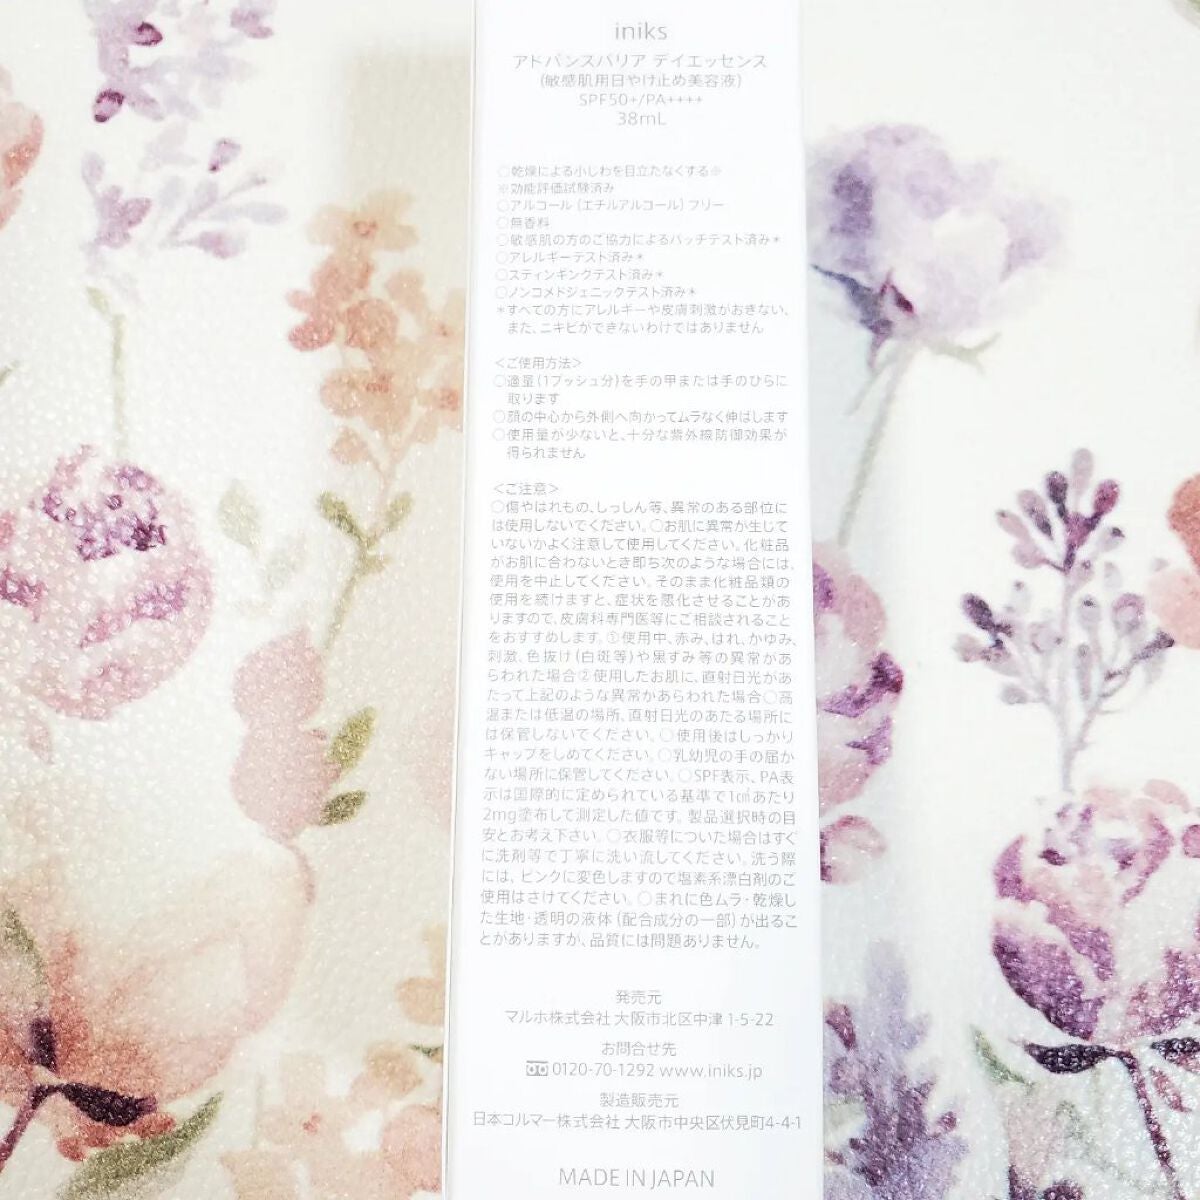 iniks
アドバンスバリア デイエッセンス
(敏感肌用日やけ止め美容液)
SPF50+/PA++++
38mL
○乾燥による小じわを目立たなくする※
※効能評価試験済み
○アルコール（エチルアルコール）フリー
○無香料
○敏感肌の方のご協力によるパッチテスト済み＊
○アレルギーテスト済み＊
○スティンギングテスト済み＊
○ノンコメドジェニックテスト済み＊
＊すべての方にアレルギーや皮膚刺激がおきない、
また、ニキビができないわけではありません
＜ご使用方法＞
○適量（1プッシュ分）を手の甲または手のひらに
取ります
○顔の中心から外側へ向かってムラなく伸ばします
○使用量が少ないと、十分な紫外線防御効果が
得られません
＜ご注意＞
○傷やはれもの、しっしん等、異常のある部位に
は使用しないでください。○お肌に異常が生じて
いないかよく注意して使用してください。化粧品
がお肌に合わないとき即ち次のような場合には、
使用を中止してください。そのまま化粧品類の
使用を続けますと、症状を悪化させることがあ
りますので、皮膚科専門医等にご相談されること
をおすすめします。①使用中、赤み、はれ、かゆみ、
刺激、色抜け（白斑等）や黒ずみ等の異常があ
らわれた場合②使用したお肌に、直射日光があ
たって上記のような異常があらわれた場合○高
温または低温の場所、直射日光のあたる場所に
は保管しないでください。○使用後はしっかり
キャップをしめてください。○乳幼児の手の届か
ない場所に保管してください。○SPF表示、PA表
示は国際的に定められている基準で1㎠あたり
2mg塗布して測定した値です。製品選択時の目
安とお考え下さい。○衣服等についた場合はすぐ
に洗剤等で丁寧に洗い流してください。洗う際
には、ピンクに変色しますので塩素系漂白剤のご
使用はさけてください。○まれに色ムラ・乾燥し
た生地・透明の液体（配合成分の一部）が出るこ
とがありますが、品質には問題ありません。
発売元
マルホ株式会社 大阪市北区中津 1-5-22
お問合せ先
0120-70-1292 www.iniks.jp
製造販売元
日本コルマー株式会社 大阪市中央区伏見町4-4-1
MADE IN JAPAN